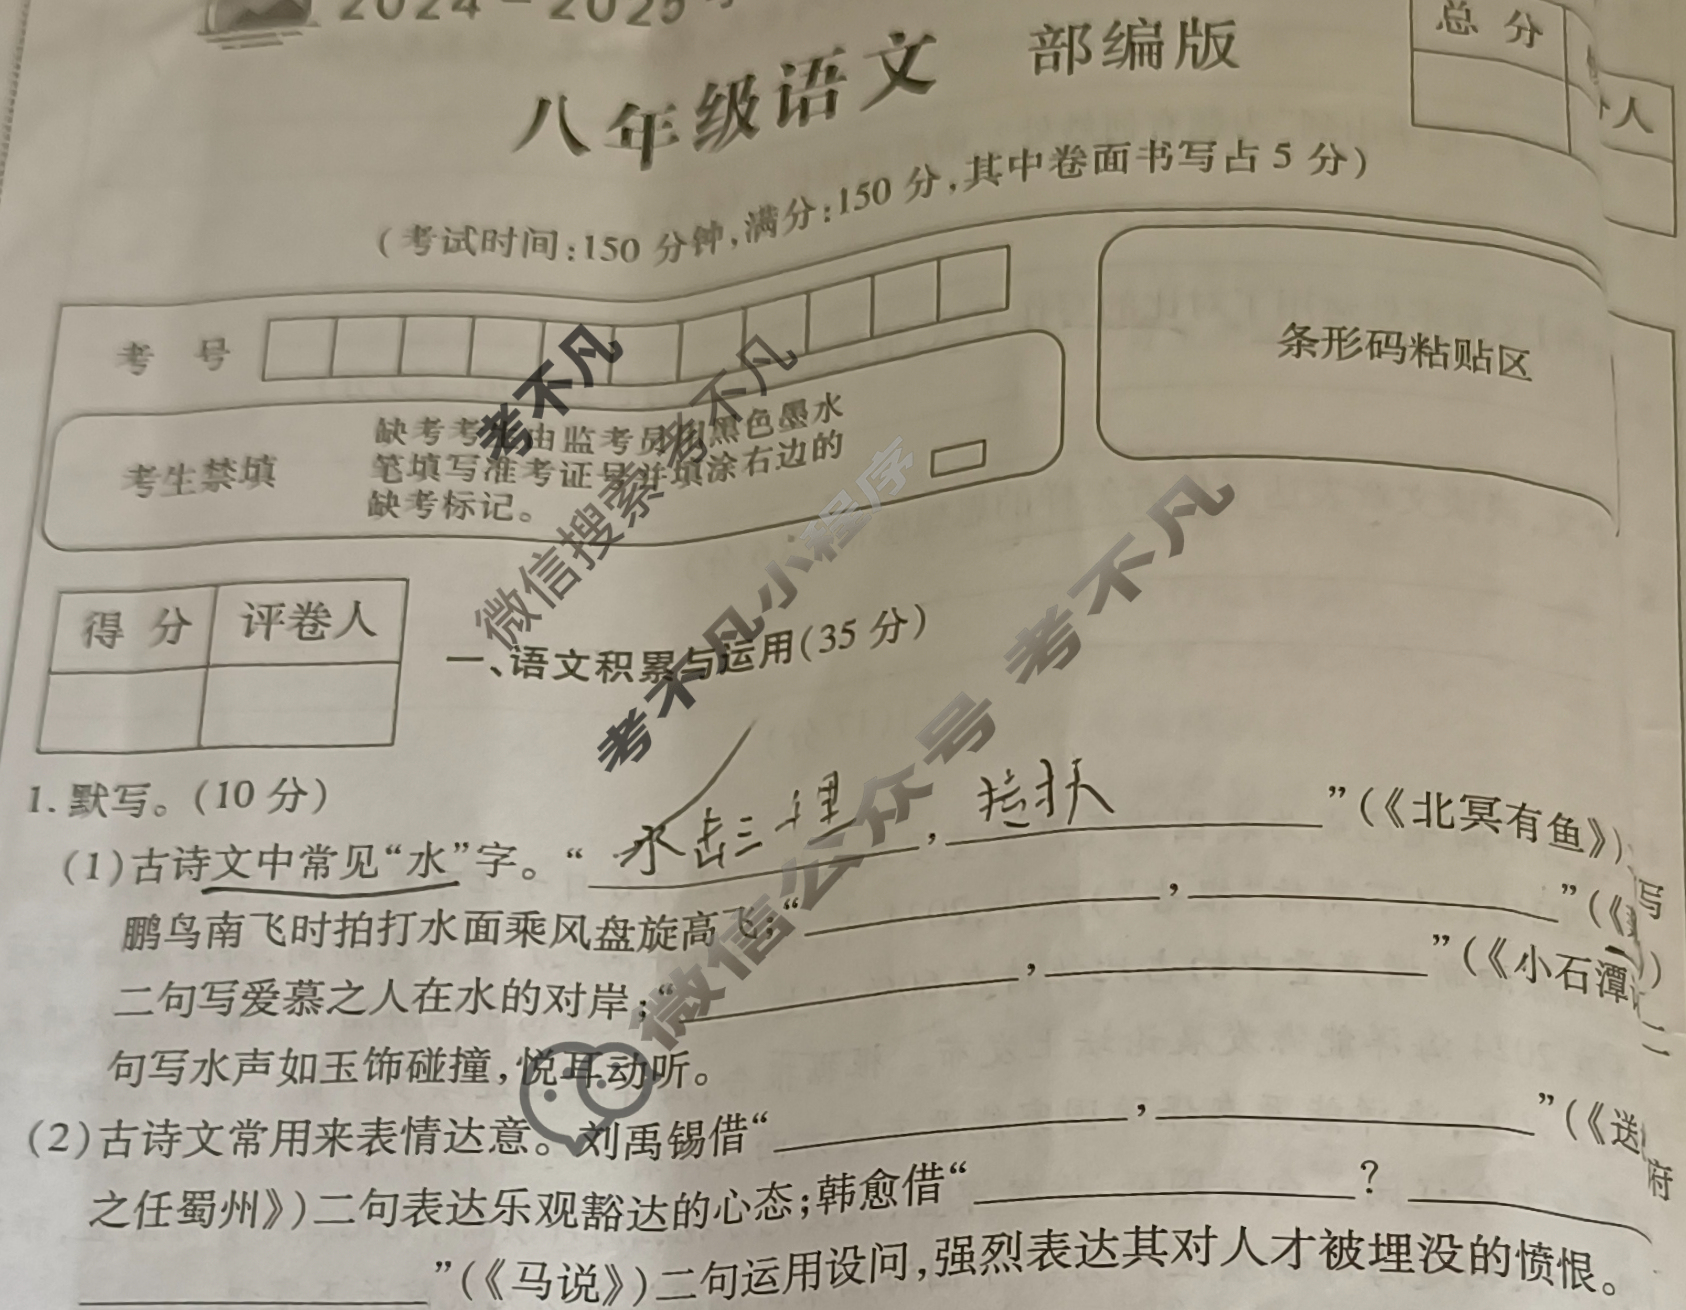 2024-2025
八年级语文 部编版
总 分
人
(考试时间:150 分钟,满分:150 分,其中卷面书写占 5 分)
考 号
条形码粘贴区
考生禁填
缺考考 由监考员用黑色墨水
笔填写准考证号并填涂右边的
缺考标记。
得 分 评卷人
一、语文积累与运用(35 分)
1. 默写。(10 分)
(1)古诗文中常见“水”字。“水击三里, ”(《北冥有鱼》)写
鹏鸟南飞时拍打水面乘风盘旋高飞;“ , ”(《
二句写爱慕之人在水的对岸;“ , ”(《小石潭记》)二
句写水声如玉饰碰撞,悦耳动听。
(2)古诗文常用来表情达意。刘禹锡借“ , ”(《送 府
之任蜀州》)二句表达乐观豁达的心态;韩愈借“ ?
”(《马说》)二句运用设问,强烈表达其对人才被埋没的愤恨。
考不凡
微信搜索 考不凡
考不凡小程序
微信公众号 考不凡